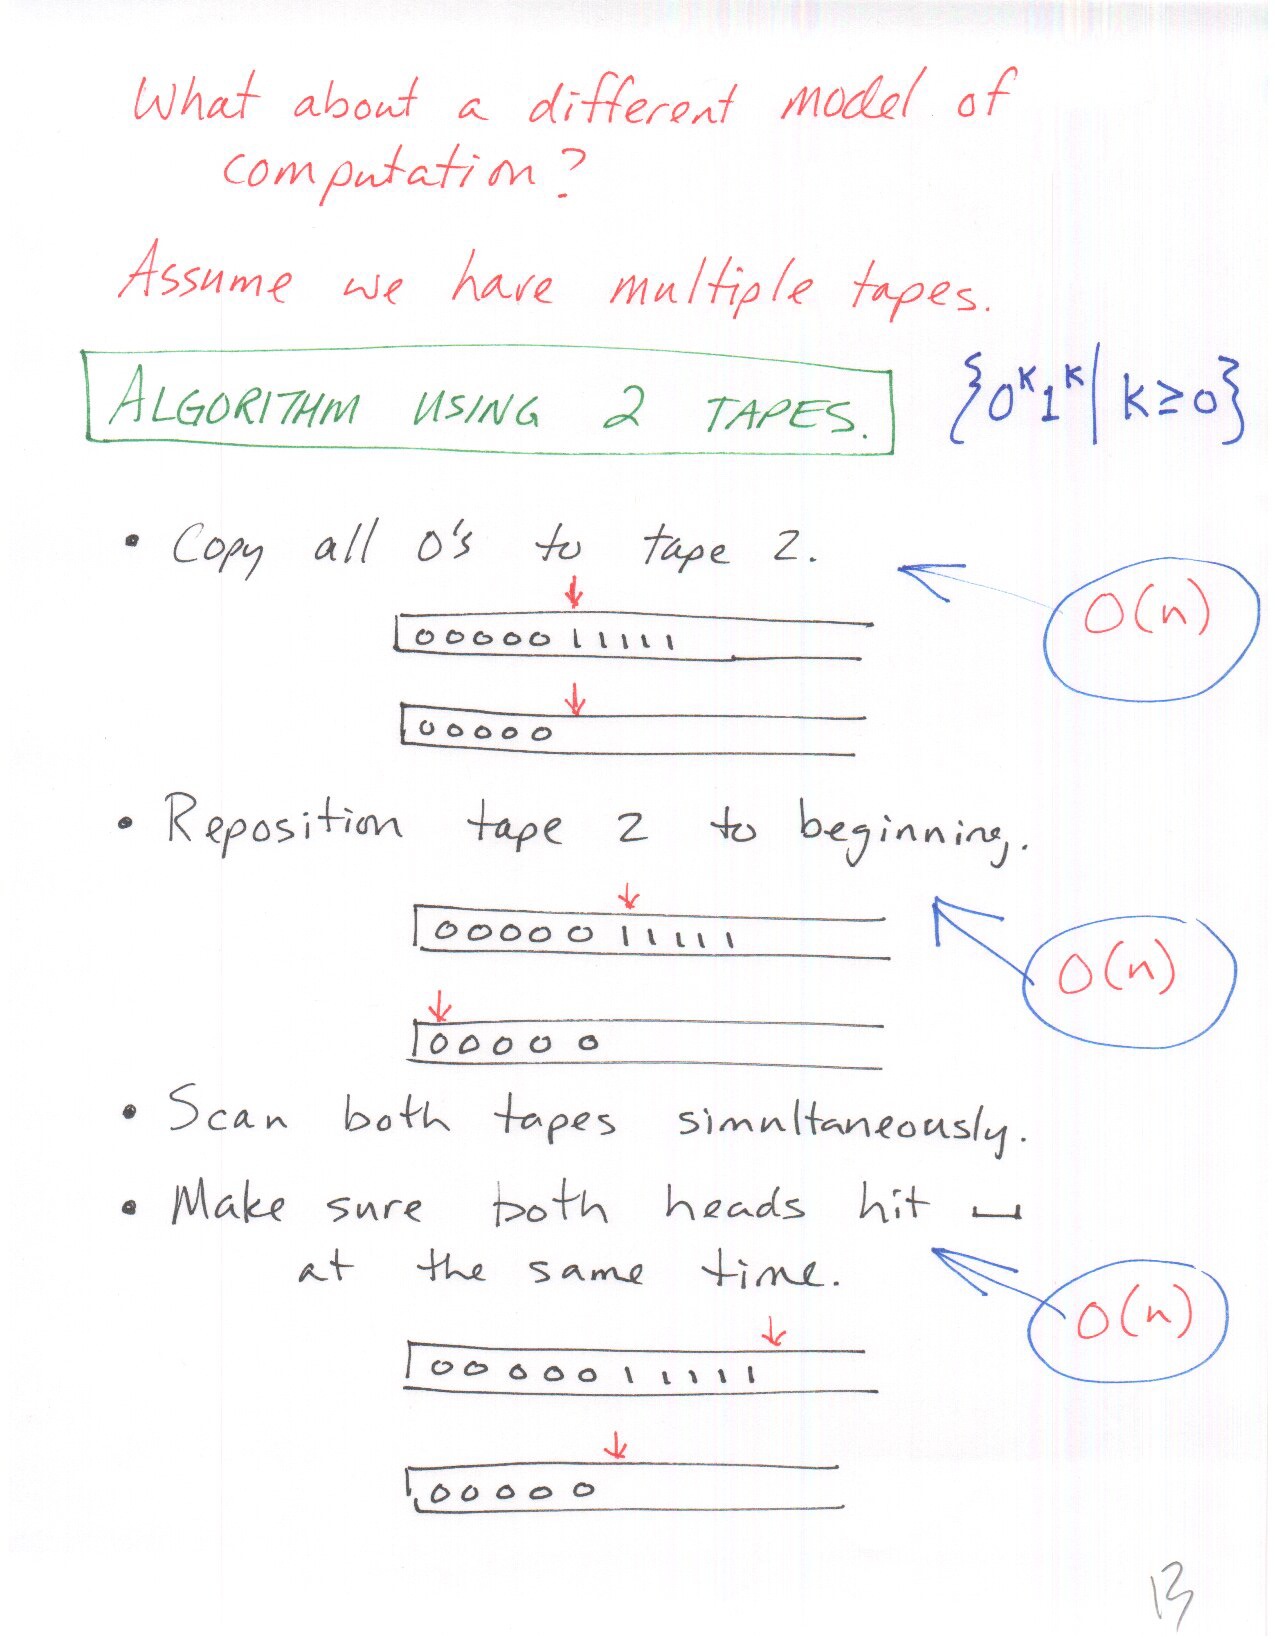 What about a different model of
computation?
Assume we have multiple tapes.
ALGORITHM USING 2 TAPES.
{0^k 1^k | k ≥ 0}
• Copy all 0's to tape 2.
O(n)
0 0 0 0 0 1 1 1 1 1
0 0 0 0 0
• Reposition tape 2 to beginning.
0 0 0 0 0 1 1 1 1 1
O(n)
0 0 0 0 0
• Scan both tapes simultaneously.
• Make sure both heads hit ⊔
at the same time.
O(n)
0 0 0 0 0 1 1 1 1 1
0 0 0 0 0
13